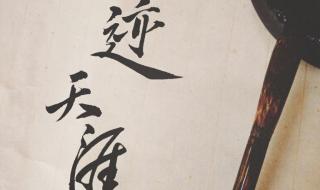 迹
天涯